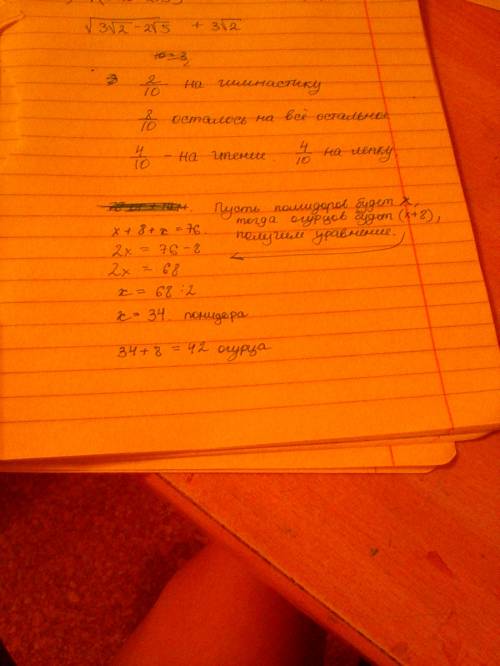 √(3√2 - 2√5) + 3√2
2/10 на гимнастику
8/10 осталось на всё остальное
4/10 - на чтение. 4/10 на лепку
Пусть помидоров будет x,
тогда огурцов будет (x+8),
получим уравнение.
x + 8 + x = 76
2x = 76 - 8
2x = 68
x = 68 : 2
x = 34 помидора
34 + 8 = 42 огурца